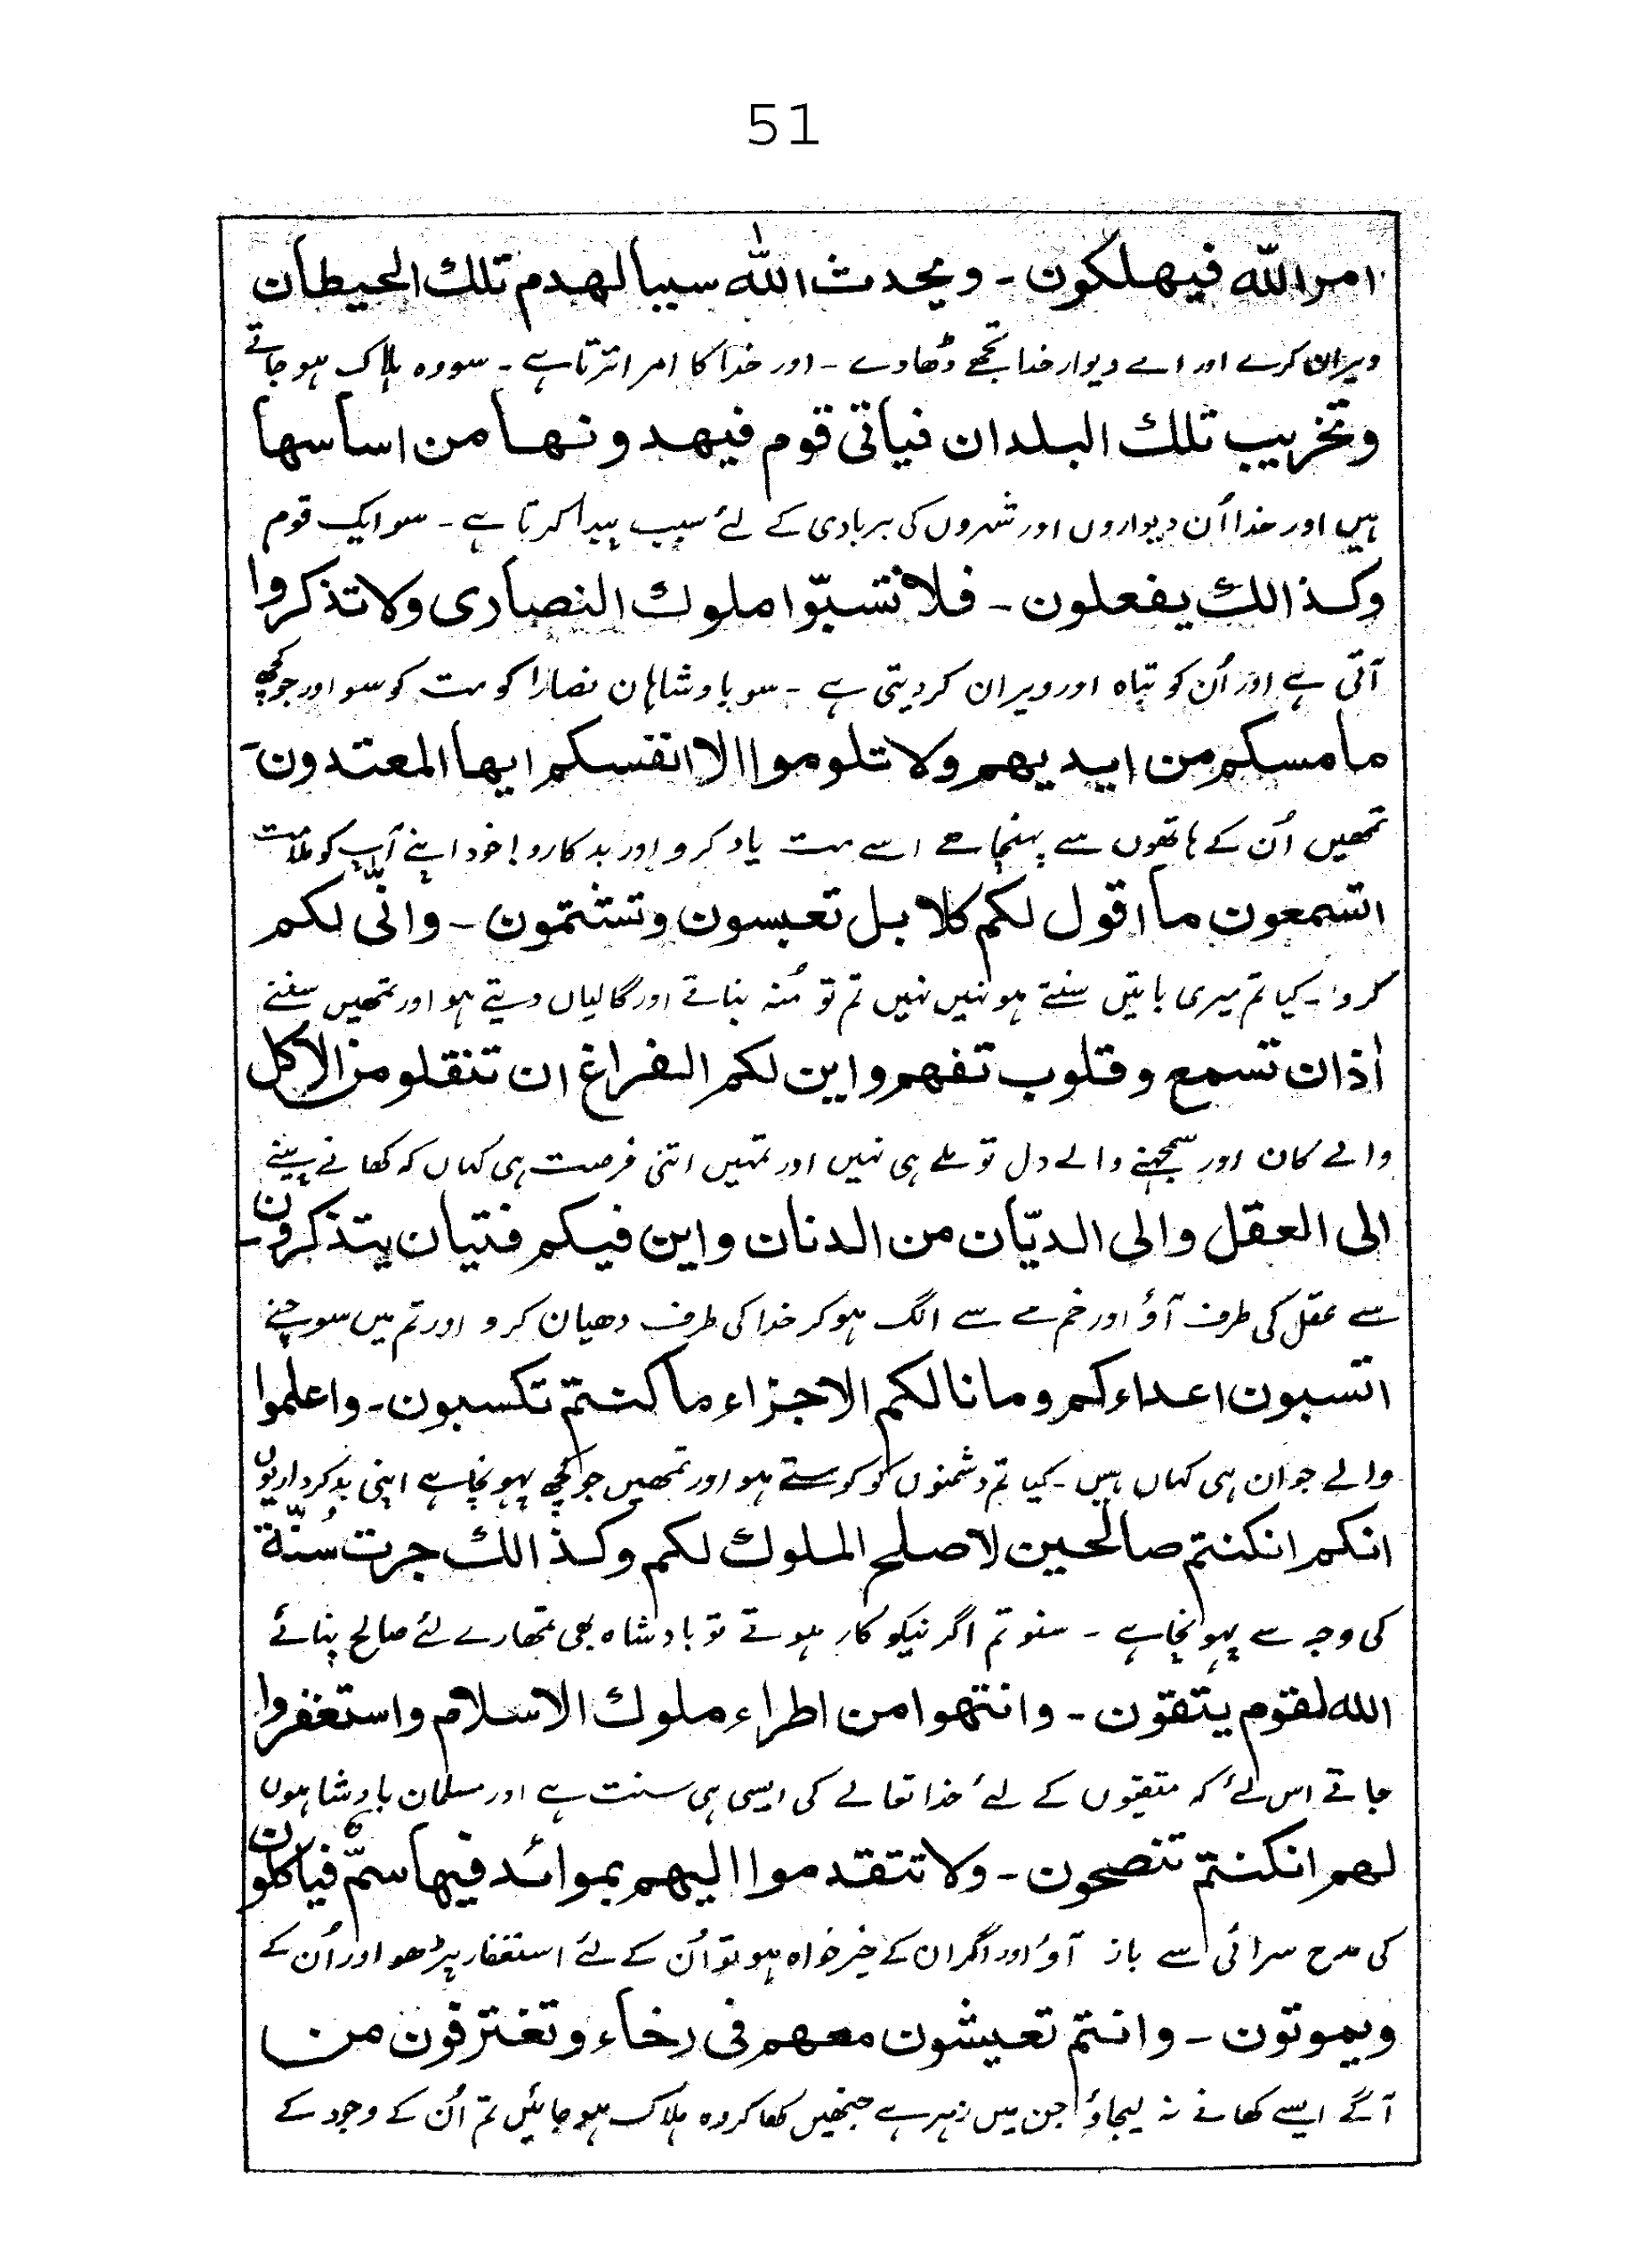 51
امر اللّٰه فيهلكون ـ ويحدث اللّٰه سببا لهدم تلك الحيطان
ویران کرے اور اے دیوار خدا تجھے ڈھاوے ۔ اور خدا کا امر اترتا ہے ۔ سو وہ ہلاک ہو جاتے
وتخريب تلك البلدان فياتى قوم فيهدونها من اساسها
ہیں اور خدا اُن دیواروں اور شہروں کی بربادی کے لئے سبب پیدا کرتا ہے ۔ سو ایک قوم
وكذالك يفعلون ـ فلا تسبّوا ملوك النصارى ولا تذكروا
آتی ہے اور اُن کو تباہ اور ویران کر دیتی ہے ۔ سو بادشاہان نصارا کو مت کوسو اور جو کچھ
ما مسكم من ايديهم ولا تلوموا الا انفسكم ايها المعتدون ـ
تمھیں اُن کے ہاتھوں سے پہنچا ہے اسے مت یاد کرو اور بدکارو! خود اپنے آپ کو ملامت
اتسمعون ما اقول لكم كلا بل تعبسون وتشتمون ـ وانّى لكم
کرو ۔ کیا تم میری باتیں سنتے ہو نہیں نہیں تم تو مُنہ بناتے اور گالیاں دیتے ہو اور تمھیں سننے
أذان تسمع وقلوب تفهم واين لكم الفراغ ان تنقلو من الاكل
والے کان اور سمجھنے والے دل تو ملے ہی نہیں اور تمہیں اتنی فرصت ہی کہاں کہ کھانے پینے
الى العقل والى الديّان من الدنان واين فيكم فتيان يتذكرون ـ
سے عقل کی طرف آؤ اور خم مے سے الگ ہو کر خدا کی طرف دھیان کرو اور تم میں سوچنے
اتسبون اعداءكم وما نالكم الا جزاء ما كنتم تكسبون ـ واعلموا
والے جوان ہی کہاں ہیں ۔ کیا تم دشمنوں کو کوستے ہو اور تمھیں جو کچھ پہونچا ہے اپنی بدکرداریوں
انكم انكنتم صالحين لاصلح الملوك لكم وكذالك جرت سُنّة
کی وجہ سے پہونچا ہے ۔ سنو تم اگر نیکو کار ہوتے تو بادشاہ بھی تمھارے لئے صالح بنائے
الله لقوم يتقون ـ وانتهوا من اطراء ملوك الاسلام واستغفروا
جاتے اس لئے کہ متقیوں کے لئے خدا تعالے کی ایسی ہی سنت ہے اور مسلمان بادشاہوں
لهم انكنتم تنصحون ـ ولا تتقدموا اليهم بموائد فيها سمّ فياكلون
کی مدح سرائی سے باز آؤ اور اگر ان کے خیر خواہ ہو تو اُن کے لئے استغفار پڑھو اور اُن کے
ويموتون ـ وانتم تعيشون معهم فى رخاء وتغترفون من
آگے ایسے کھانے نہ لیجاؤ جن میں زہر ہے جنھیں کھا کر وہ ہلاک ہو جائیں تم اُن کے وجود کے